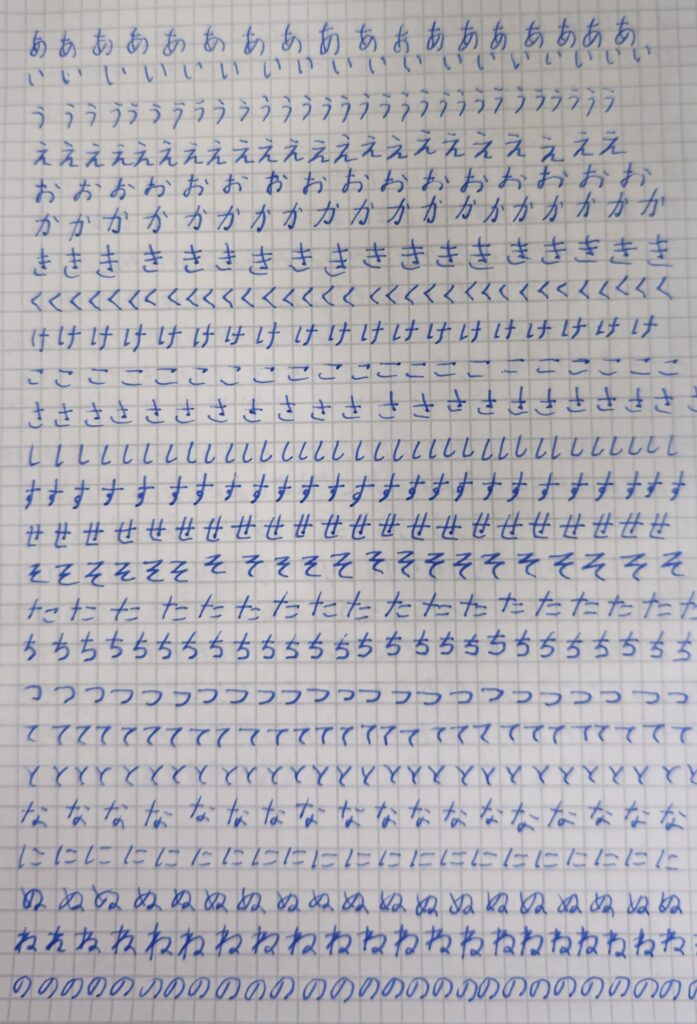 ああああああああああああああああああ
いいいいいいいいいいいいいいいいいい
ううううううううううううううううううううううううううううう
ええええええええええええええええええええええ
おおおおおおおおおおおおおおおお
かかかかかかかかかかかかかかかかかかか
きききききききききききききききききき
くくくくくくくくくくくくくくくくくくくくくくくくくくくくくくくく
けけけけけけけけけけけけけけけけけけけ
こここここここここここここここここここここ
ささささささささささささささささささささささ
しししししししししししししししししししししししししし
すすすすすすすすすすすすすすすすすすすすすすすすす
せせせせせせせせせせせせせせせせせせせせせせ
そそそそそそそそそそそそそそそそそそそそそ
たたたたたたたたたたたたたたたたたた
ちちちちちちちちちちちちちちちちちちちちちちちちちち
つつつつつつつつつつつつつつつつつつつつつつつ
てててててててててててててててててててててててててててて
とととととととととととととととととととととととととととと
なななななななななななななななななな
にににににににににににににににににににに
ぬぬぬぬぬぬぬぬぬぬぬぬぬぬぬぬぬぬぬ
ねねねねねねねねねねねねねねねねねねねねね
ののののののののののののののののののののののののののの